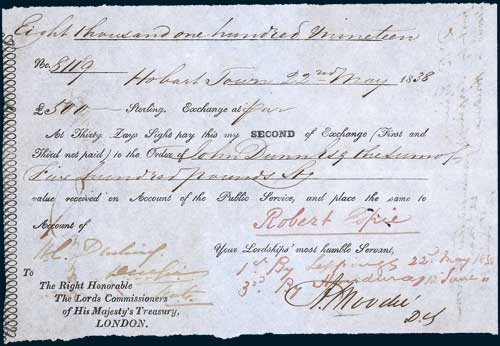 Eight thousand one hundred & nineteen
No. 8119
Hobart Town 22nd May 1838
£500 Sterling. Exchange at par
At Thirty Days Sight pay this my SECOND of Exchange (First and
Third not paid) to the Order of John Dunn Esq the Sum of
Five hundred Pounds Stg
value received on Account of the Public Service, and place the same to
Account of
Robert
Your Lordships' most humble Servant,
1st By 22d May 1838
3rd By June
To
The Right Honorable
The Lords Commissioners
of His Majesty's Treasury,
LONDON.
A. Moodie